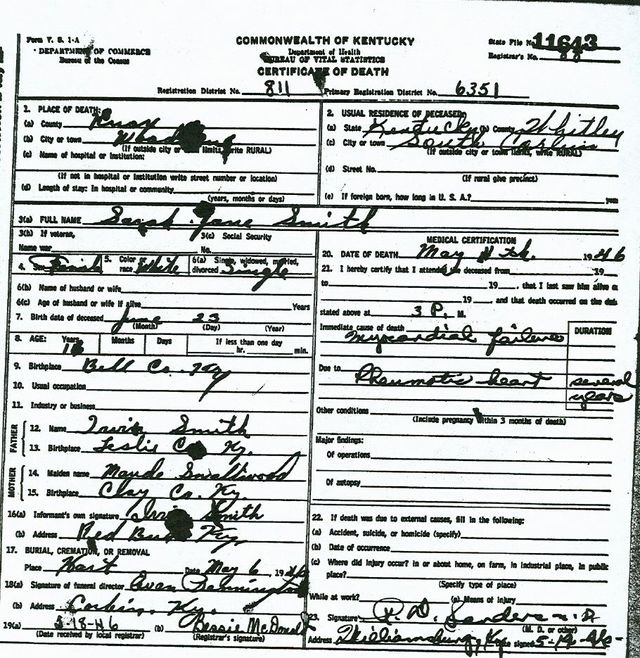 Form V. S. 1-A
DEPARTMENT OF COMMERCE
Bureau of the Census
COMMONWEALTH OF KENTUCKY
Department of Health
BUREAU OF VITAL STATISTICS
CERTIFICATE OF DEATH
State File No. 11643
Registrar's No.
Registration District No. 811 Primary Registration District No. 6351
1. PLACE OF DEATH:
(a) County Knox
(b) City or town
(If outside city or limits, write RURAL)
(c) Name of hospital or institution:
(If not in hospital or institution write street number or location)
(d) Length of stay: In hospital or community
(years, months or days)
2. USUAL RESIDENCE OF DECEASED:
(a) State Kentucky (b) County Whitley
(c) City or town South Corbin
(If outside city or town limits, write RURAL)
(d) Street No.
(If rural give precinct)
(e) If foreign born, how long in U. S. A.? years
3(a) FULL NAME Sarah Jane Smith
3(b) If veteran, 3(c) Social Security
Name war No.
4. Sex Female 5. Color or race White 6(a) Single, widowed, married, divorced Single
6(b) Name of husband or wife
6(c) Age of husband or wife if alive Years
7. Birth date of deceased June 23
(Month) (Day) (Year)
8. AGE: Years Months Days If less than one day
hr. min.
9. Birthplace Bell Co. Ky
10. Usual occupation
11. Industry or business
FATHER
12. Name Irvin Smith
13. Birthplace Leslie Co Ky.
MOTHER
14. Maiden name Maude Smallwood
15. Birthplace Clay Co. Ky.
16(a) Informant's own signature Smith
(b) Address Red Ky.
17. BURIAL, CREMATION, OR REMOVAL
Place Hart Date May 6 1946
18(a) Signature of funeral director
(b) Address Corbin, Ky.
19(a) 5-18-46 (b) Bessie McDonald
(Date received by local registrar) (Registrar's signature)
MEDICAL CERTIFICATION
20. DATE OF DEATH May 4th. 1946
21. I hereby certify that I attended the deceased from 19
to 19 , that I last saw him alive on
19 , and that death occurred on the date
stated above at 3 P. M.
Immediate cause of death DURATION
Myocardial failure
Due to Rheumatic heart several years
Other conditions
(Include pregnancy within 3 months of death)
Major findings:
Of operations
Of autopsy
22. If death was due to external causes, fill in the following:
(a) Accident, suicide, or homicide (specify)
(b) Date of occurrence
(c) Where did injury occur? in or about home, on farm, in industrial place, in public place?
(Specify type of place)
While at work? (e) Means of injury
23. Signature Sanders
(M. D. or other)
Address Williamsburg, Ky Date signed